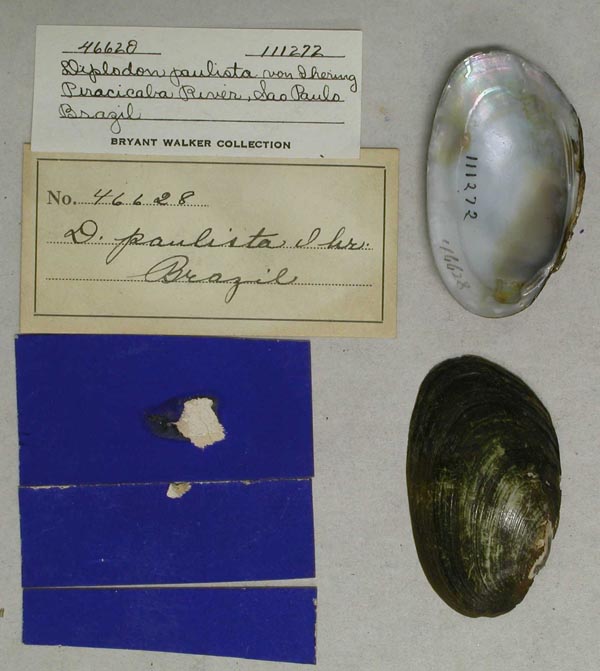 46628 111272
Diplodon paulista von Ihering
Piracicaba River, Sao Paulo
Brazil
BRYANT WALKER COLLECTION
No. 46628
D. paulista Ihr.
Brazil
111272
46628